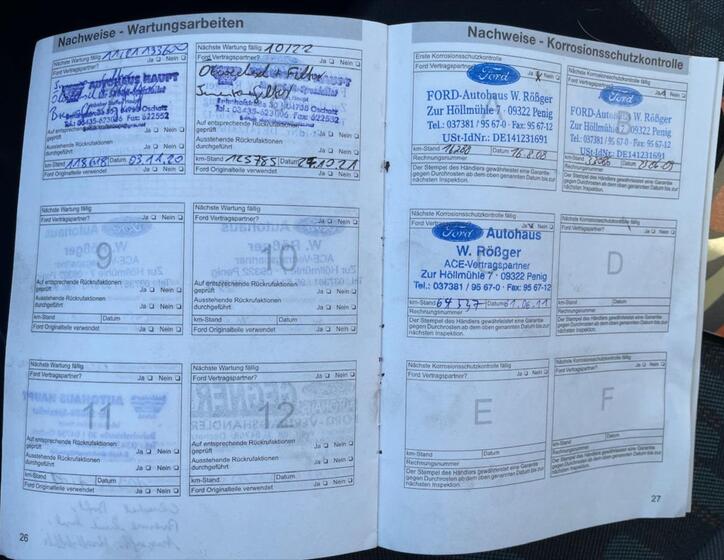 Nachweise - Wartungsarbeiten
Nächste Wartung fällig
Ford Vertragspartner? Ja Nein
AUTOHAUS HAUPT
Auf entsprechende Rückrufaktionen
geprüft Ja Nein
Ausstehende Rückrufaktionen
durchgeführt Ja Nein
km-Stand 118618 Datum 03.11.20
Nächste Wartung fällig 10/22
Ford Vertragspartner? Ja Nein
HAUPT
Auf entsprechende Rückrufaktionen
geprüft Ja Nein
Ausstehende Rückrufaktionen
durchgeführt Ja Nein
km-Stand 125785 Datum
Nächste Wartung fällig
Ford Vertragspartner? Ja Nein
9
Auf entsprechende Rückrufaktionen
geprüft Ja Nein
Ausstehende Rückrufaktionen
durchgeführt Ja Nein
km-Stand Datum
Ford Originalteile verwendet Ja Nein
Nächste Wartung fällig
Ford Vertragspartner? Ja Nein
10
Auf entsprechende Rückrufaktionen
geprüft Ja Nein
Ausstehende Rückrufaktionen
durchgeführt Ja Nein
km-Stand Datum
Ford Originalteile verwendet Ja Nein
Nächste Wartung fällig
Ford Vertragspartner? Ja Nein
11
Auf entsprechende Rückrufaktionen
geprüft Ja Nein
Ausstehende Rückrufaktionen
durchgeführt Ja Nein
km-Stand Datum
Ford Originalteile verwendet Ja Nein
Nächste Wartung fällig
Ford Vertragspartner? Ja Nein
12
Auf entsprechende Rückrufaktionen
geprüft Ja Nein
Ausstehende Rückrufaktionen
durchgeführt Ja Nein
km-Stand Datum
Ford Originalteile verwendet Ja Nein
26
Nachweise - Korrosionsschutzkontrolle
Erste Korrosionsschutzkontrolle
Ford Vertragspartner? Ja Nein
Ford
FORD-Autohaus W. Rößger
Zur Höllmühle 7 · 09322 Penig
Tel.: 037381 / 95 67-0 · Fax: 95 67-12
USt-IdNr.: DE141231691
km-Stand Datum
Rechnungsnummer
Der Stempel des Händlers gewährleistet eine Garantie
gegen Durchrosten ab dem oben genannten Datum bis zur
nächsten Inspektion.
Nächste Korrosionsschutzkontrolle fällig
Ford Vertragspartner? Ja Nein
Ford
FORD-Autohaus W. Rößger
Zur Höllmühle 7 · 09322 Penig
Tel.: 037381 / 95 67-0 · Fax: 95 67-12
USt-IdNr.: DE141231691
km-Stand Datum
Rechnungsnummer
Der Stempel des Händlers gewährleistet eine Garantie
gegen Durchrosten ab dem oben genannten Datum bis zur
nächsten Inspektion.
Nächste Korrosionsschutzkontrolle fällig
Ford Vertragspartner? Ja Nein
Ford Autohaus
W. Rößger
ACE-Vertragspartner
Zur Höllmühle 7 · 09322 Penig
Tel.: 037381 / 95 67-0 · Fax: 95 67-12
km-Stand 64537 Datum 01.06.11
Rechnungsnummer
Der Stempel des Händlers gewährleistet eine Garantie
gegen Durchrosten ab dem oben genannten Datum bis zur
nächsten Inspektion.
Nächste Korrosionsschutzkontrolle fällig
Ford Vertragspartner? Ja Nein
D
km-Stand Datum
Rechnungsnummer
Der Stempel des Händlers gewährleistet eine Garantie
gegen Durchrosten ab dem oben genannten Datum bis zur
nächsten Inspektion.
Nächste Korrosionsschutzkontrolle fällig
Ford Vertragspartner? Ja Nein
E
km-Stand Datum
Rechnungsnummer
Der Stempel des Händlers gewährleistet eine Garantie
gegen Durchrosten ab dem oben genannten Datum bis zur
nächsten Inspektion.
Nächste Korrosionsschutzkontrolle fällig
Ford Vertragspartner? Ja Nein
F
km-Stand Datum
Rechnungsnummer
Der Stempel des Händlers gewährleistet eine Garantie
gegen Durchrosten ab dem oben genannten Datum bis zur
nächsten Inspektion.
27